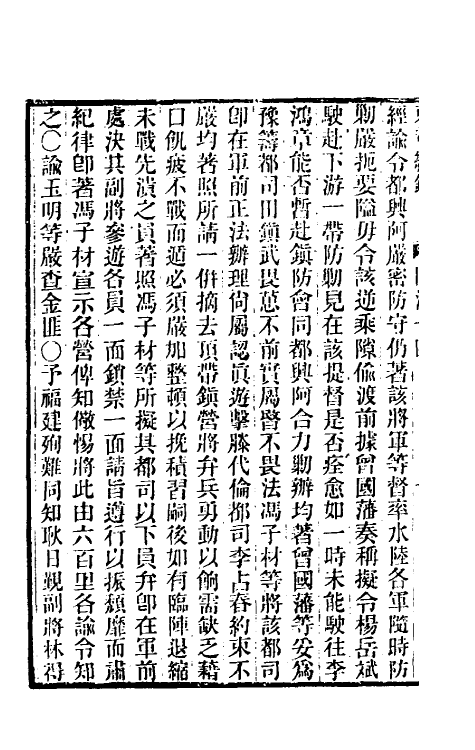 經諭令都興阿嚴密防守仍著該將軍等督率水陸各軍隨時防
勦嚴扼要隘毋令該逆乘隙偷渡前據曾國藩奏稱擬令楊岳斌
駛赴下游一帶防勦見在該提督是否痊愈如一時未能駛往李
鴻章能否暫赴鎮防會同都興阿合力勦辦均著曾國藩等妥爲
豫籌都司田鎮武畏葸不前實屬瞖不畏法馮子材等將該都司
卽在軍前正法辦理尙屬認眞遊擊滕代倫都司李占春約束不
嚴均著照所請一倂摘去頂帶鎮營將弁兵勇動以餉需缺乏藉
口飢疲不戰而遁必須嚴加整頓以挽積習嗣後如有臨陣退縮
未戰先潰之員著照馮子材等所擬其都司以下員弁卽在軍前
處決其副將參遊各員一面鎖禁一面請旨遵行以振頹靡而肅
紀律卽著馮子材宣示各營俾知儆惕將此由六百里各諭令知
之○諭玉明等嚴查金匪○予福建殉難同知耿日覲副將林得